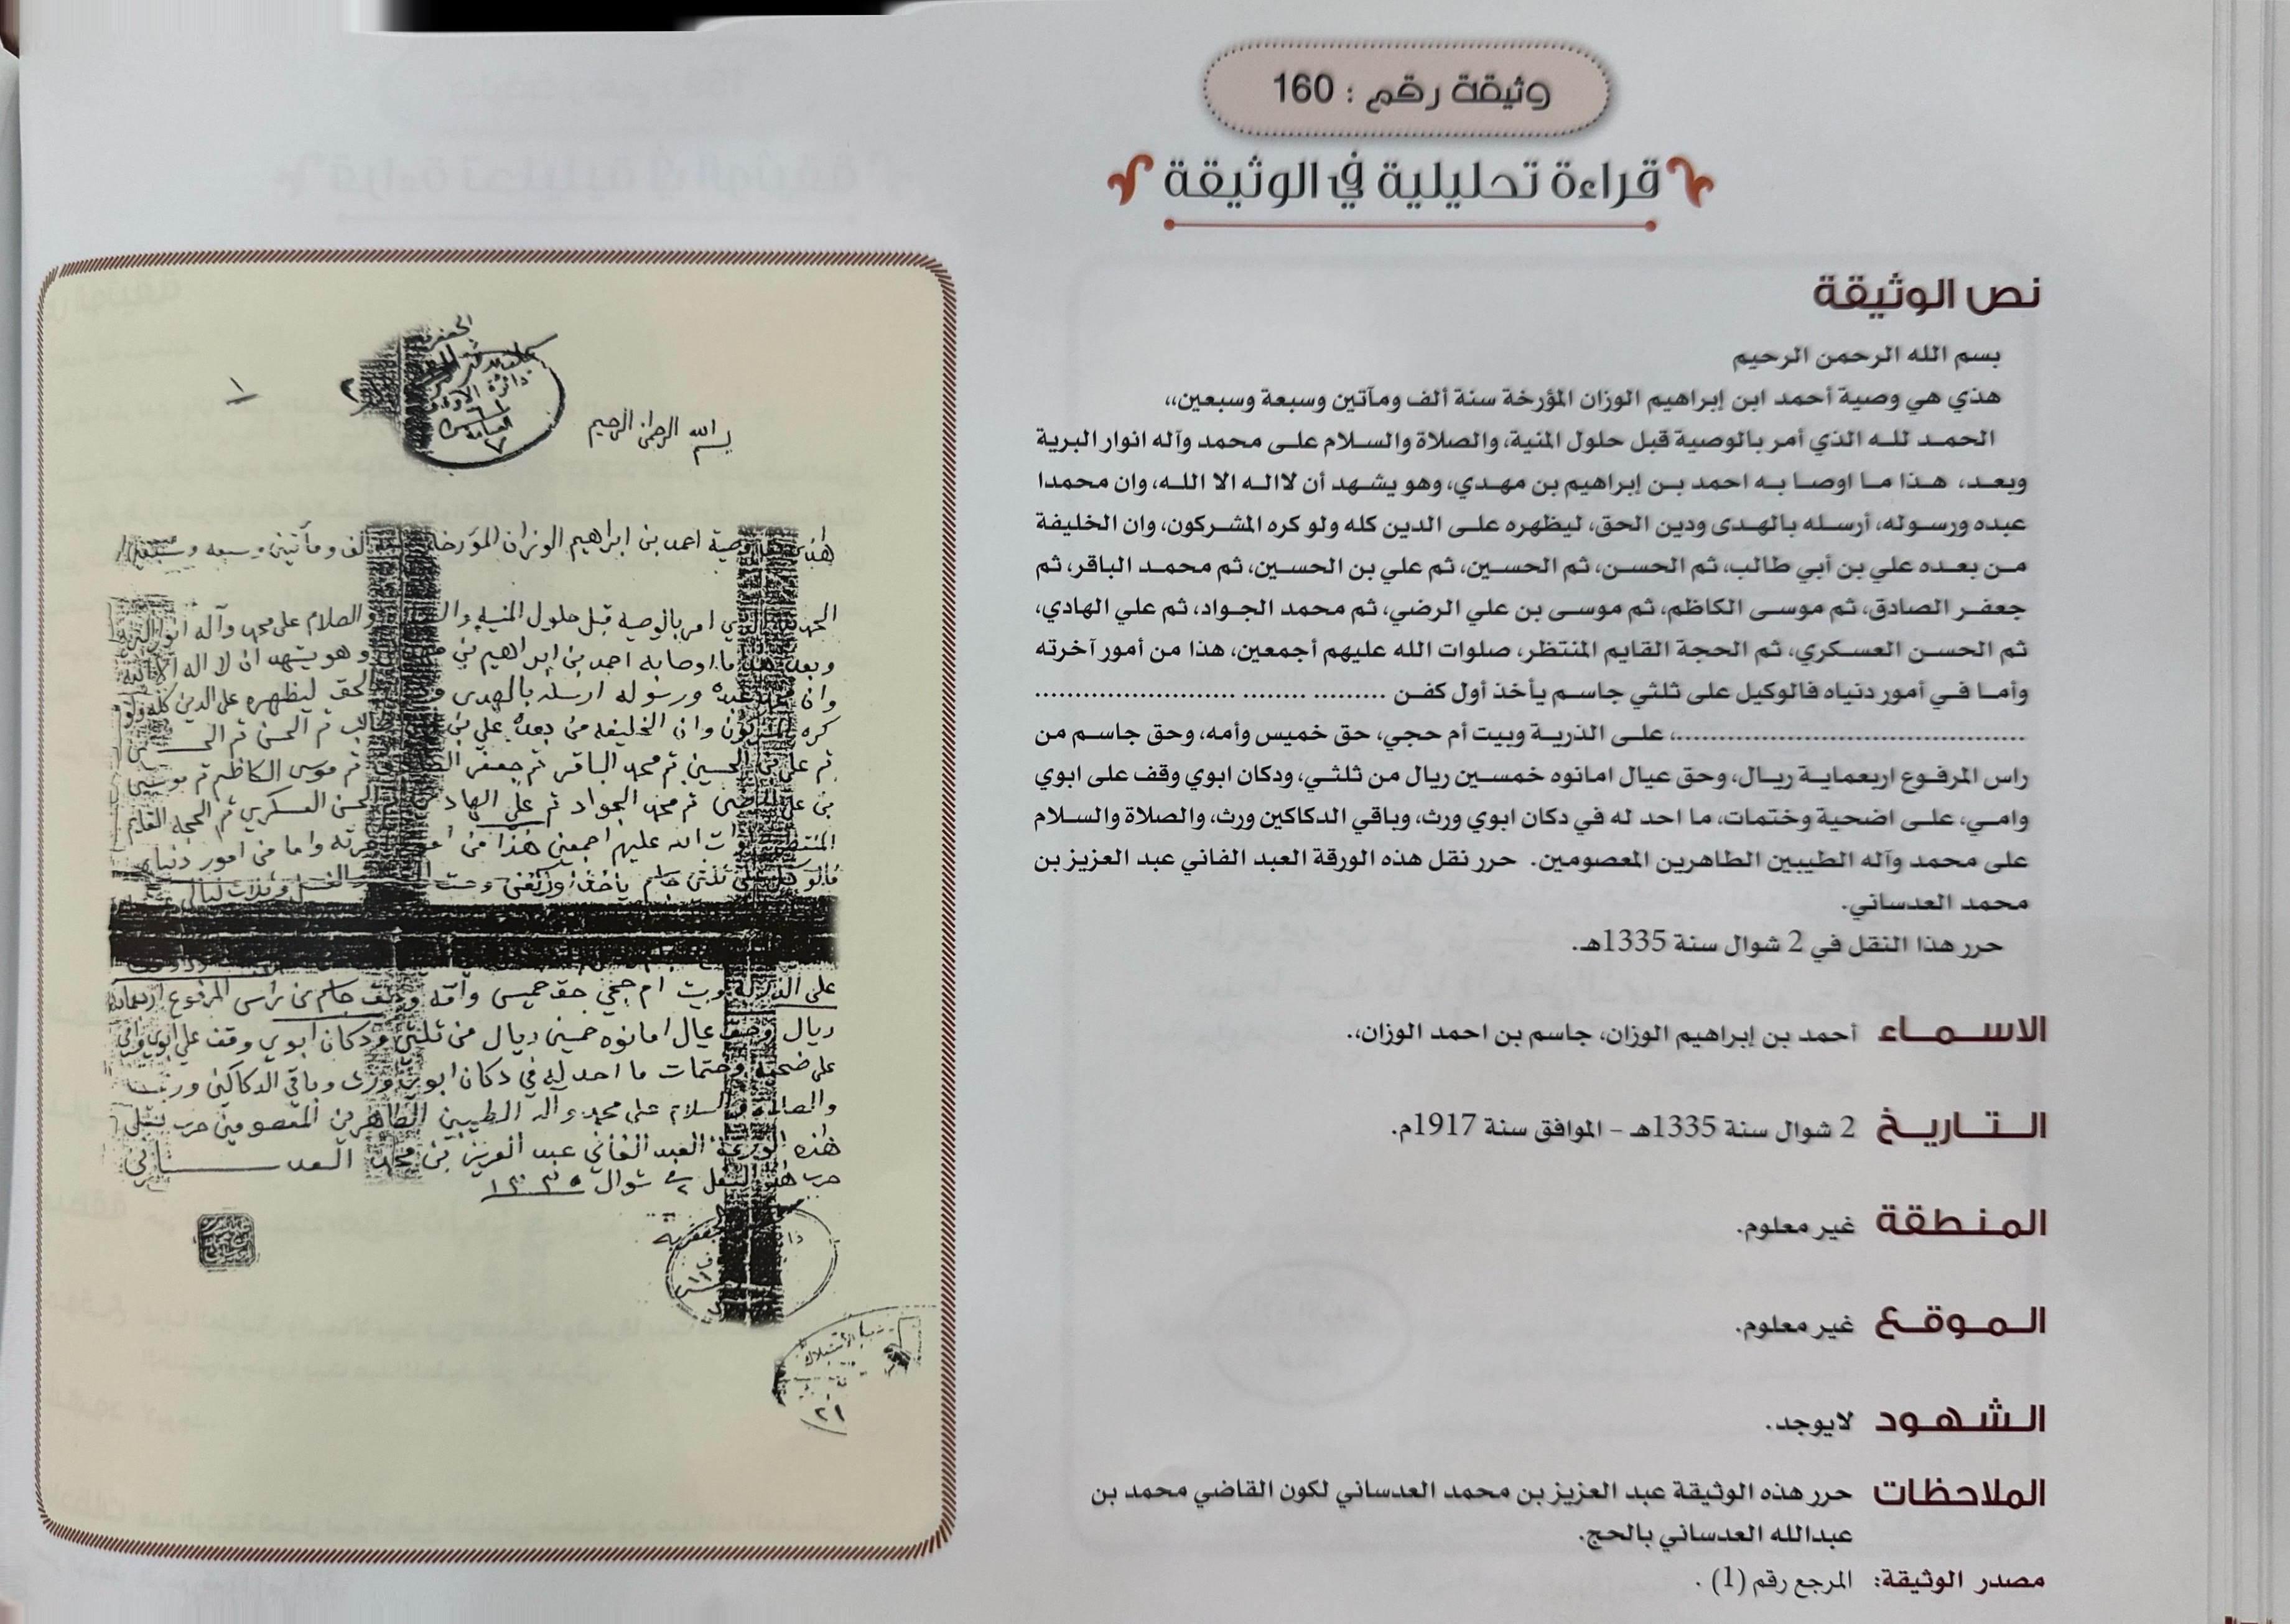 وثيقة رقم : 160
قراءة تحليلية في الوثيقة
نص الوثيقة
بسم الله الرحمن الرحيم
هذي هي وصية أحمد ابن إبراهيم الوزان المؤرخة سنة ألف ومآتين وسبعة وسبعين،،
الحمد لله الذي أمر بالوصية قبل حلول المنية، والصلاة والسلام على محمد وآله انوار البرية
وبعد، هذا ما اوصا به احمد بن إبراهيم بن مهدي، وهو يشهد أن لااله الا الله، وان محمدا
عبده ورسوله، أرسله بالهدى ودين الحق، ليظهره على الدين كله ولو كره المشركون، وان الخليفة
من بعده علي بن أبي طالب، ثم الحسن، ثم الحسين، ثم علي بن الحسين، ثم محمد الباقر، ثم
جعفر الصادق، ثم موسى الكاظم، ثم موسى بن علي الرضي، ثم محمد الجواد، ثم علي الهادي،
ثم الحسن العسكري، ثم الحجة القايم المنتظر، صلوات الله عليهم أجمعين، هذا من أمور آخرته
وأما في أمور دنياه فالوكيل على ثلثي جاسم يأخذ أول كفن ......... ........ .........................
............................................، على الذرية وبيت أم حجي، حق خميس وأمه، وحق جاسم من
راس المرفوع اربعماية ريال، وحق عيال امانوه خمسين ريال من ثلثي، ودكان ابوي وقف على ابوي
وامي، على اضحية وختمات، ما احد له في دكان ابوي ورث، وباقي الدكاكين ورث، والصلاة والسلام
على محمد وآله الطيبين الطاهرين المعصومين. حرر نقل هذه الورقة العبد الفاني عبد العزيز بن
محمد العدساني.
حرر هذا النقل في 2 شوال سنة 1335هـ.
الاسماء أحمد بن إبراهيم الوزان، جاسم بن احمد الوزان،.
التاريخ 2 شوال سنة 1335هـ – الموافق سنة 1917م.
المنطقة غير معلوم.
الموقع غير معلوم.
الشهود لايوجد.
الملاحظات حرر هذه الوثيقة عبد العزيز بن محمد العدساني لكون القاضي محمد بن
عبدالله العدساني بالحج.
مصدر الوثيقة: المرجع رقم (1) .
١
بسم الله الرحمن الرحيم
وصية احمد بن ابراهيم الوزان المؤرخة الف ومآتين وسبعه وسبعين
امر بالوصيه قبل حلول المنيه والسلام على محمد وآله
وبعد ما اوصا به احمد بن ابراهيم بن وهو يشهد ان لا اله الا الله
وان ورسوله ارسله بالهدى الحق ليظهره على الدين كله ولو
كره وان الخليفه من بعده علي بن ثم الحسن ثم
ثم علي الحسين ثم محمد الباقر ثم جعفر ثم موسى الكاظم ثم موسى
بن علي ثم محمد الجواد ثم علي الهاد الحسن العسكري ثم الحجه القايم
المنتظر الله عليهم اجمعين هذا من واما من امور دنياه
ثلثي جاسم ياخذ
على وبيت ام حجي حق خميس وامه جاسم من راس المرفوع اربعمايه
ريال وحق عيال امانوه خمسين ريال من ثلثي ودكان ابوي وقف على ابوي وامي
على ضحيه وختمات ما احد له في دكان ابوي ورث وباقي الدكاكين ورث
والسلام على محمد وآله الطيبين الطاهرين المعصومين حرر نقل
هذه العبد الفاني عبد العزيز بن محمد العدساني
حرر النقل ٢ شوال ١٣٣٥
الجعفرية
٢١